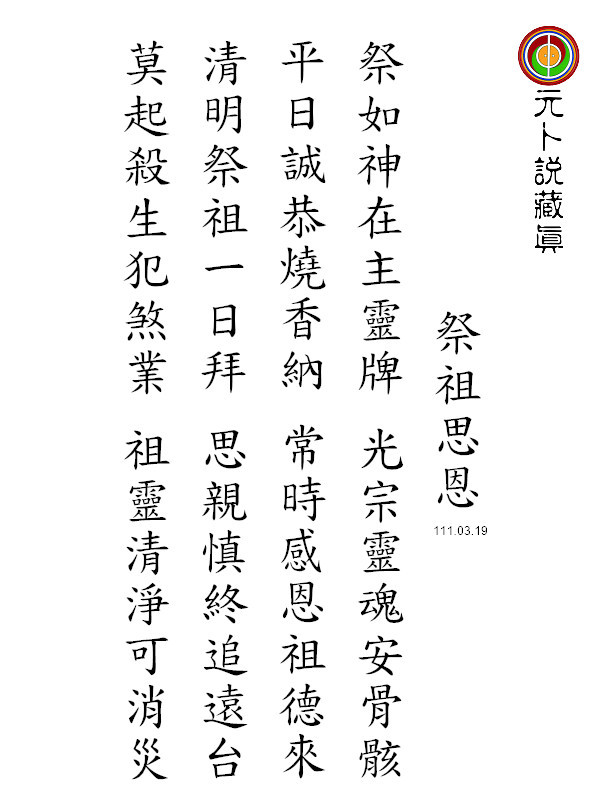 元卜說藏真
祭祖思恩
111.03.19
祭如神在主靈牌 光宗靈魂安骨骸
平日誠恭燒香納 常時感恩祖德來
清明祭祖一日拜 思親慎終追遠台
莫起殺生犯煞業 祖靈清淨可消災